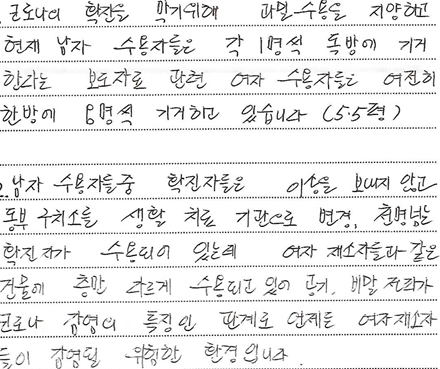 코로나의 확산을 막기위해 과밀수용을 지양하고
현재 남자 수용자들은 각 1명씩 독방에 거거
한다는 보도자료 관련 여자 수용자들은 여전히
한방에 8명씩 거거하고 있습니다 (5.5평)
2. 남자 수용자들중 확진자들은 이송을 보내지 않고
동부구치소를 생활 치료 기관으로 변경, 천명넘는
확진자가 수용되어 있는데 여자 재소자들과 같은
건물에 층만 다르게 수용되고 있어 공기, 비말 전파가
코로나 감염의 특징인 관계로 언제든 여자재소자
들이 감염될 위험한 환경입니다.